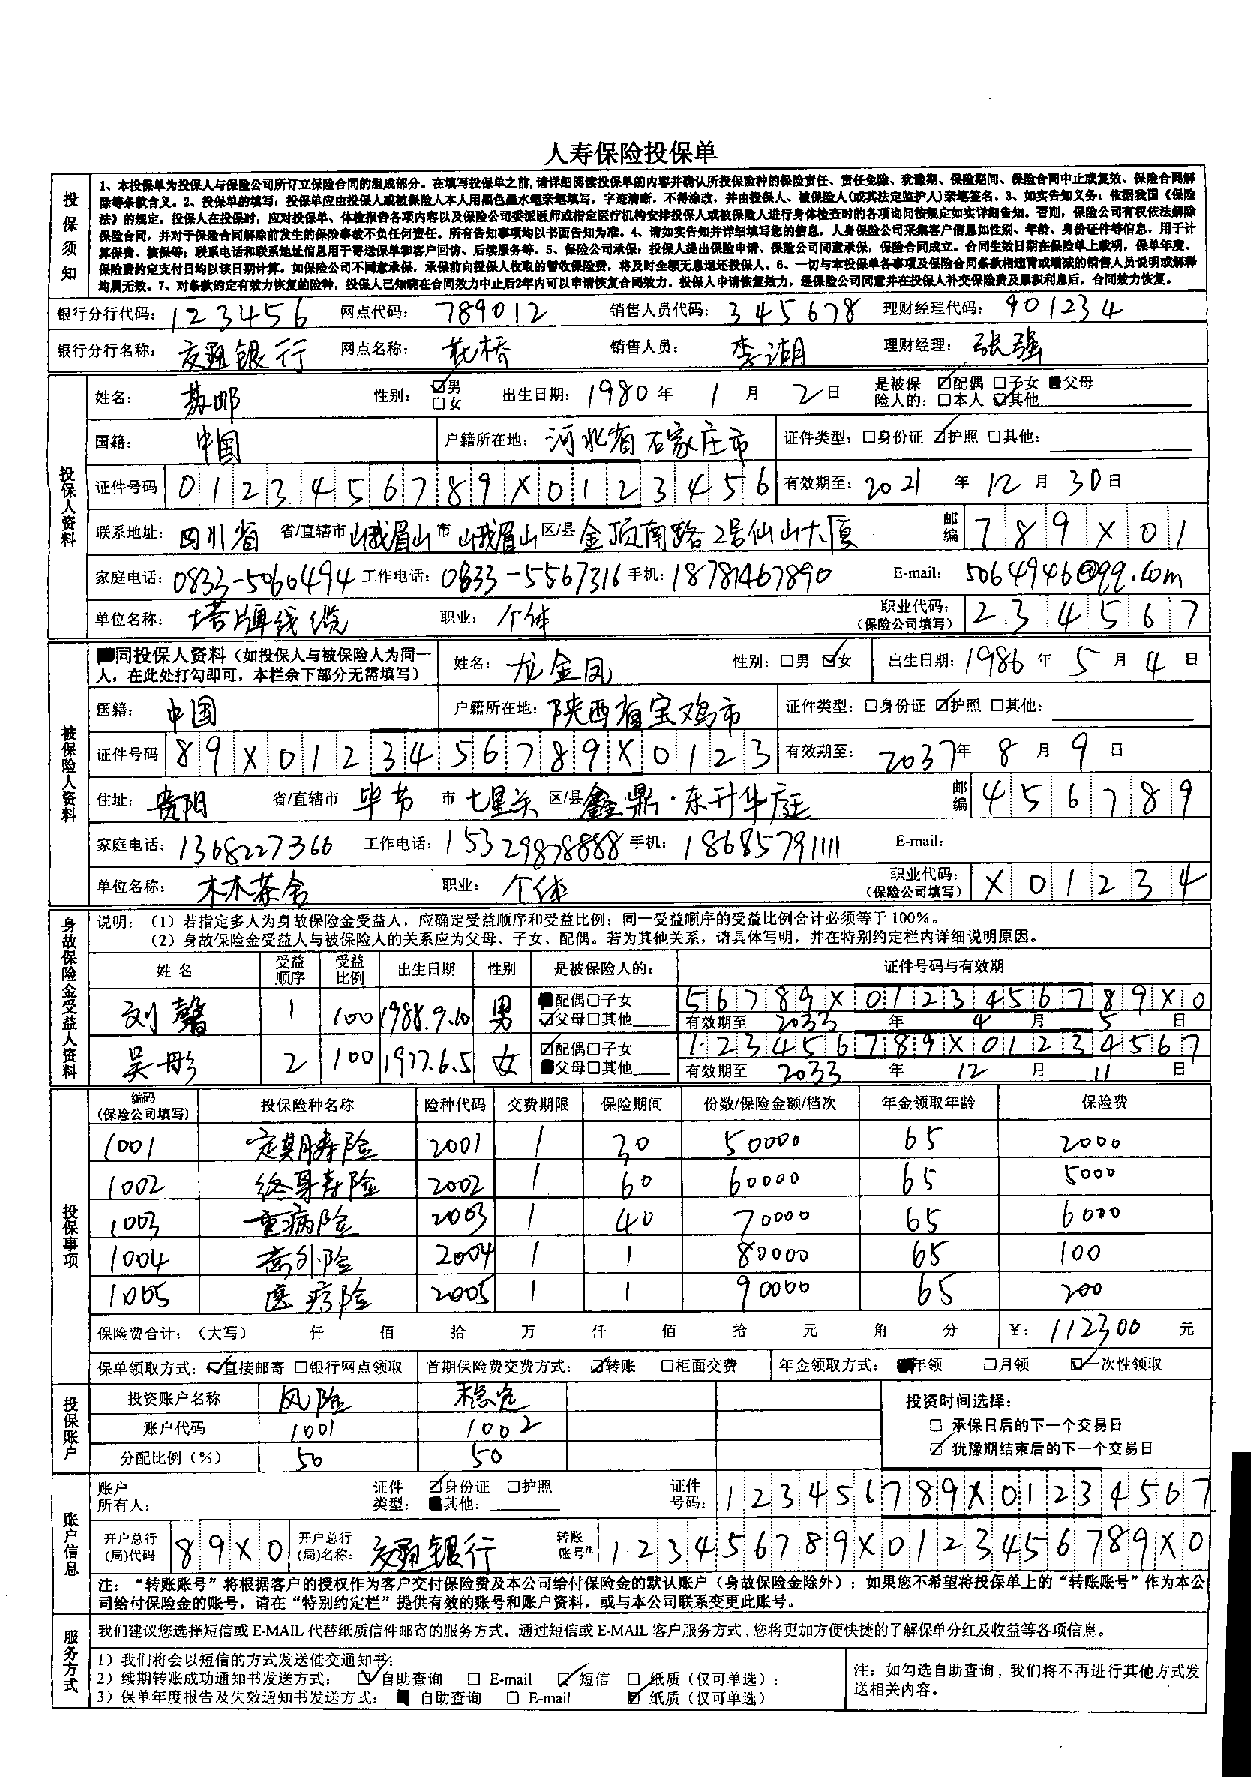 人寿保险投保单
投保须知
1、本投保单为投保人与保险公司所订立保险合同的组成部分。在填写投保单之前,请详细阅读投保单的内容并确认所投保险种的保险责任、责任免除、犹豫期、保险期间、保险合同中止或复效、保险合同解
除等条款含义。2、投保单的填写:投保单应由投保人或被保险人本人用黑色墨水笔亲笔填写,字迹清晰,不得涂改,并由投保人、被保险人(或其法定监护人)亲笔签名。3、如实告知义务:依据我国《保险
法》的规定,投保人在投保时,应对投保单、体检报告各项内容以及保险公司委派医师或指定医疗机构安排投保人或被保险人进行身体检查时的各项询问按规定如实详细告知。否则,保险公司有权依法解除
保险合同,并对于保险合同解除前发生的保险事故不负任何责任。所有告知事项均以书面告知为准。4、请如实告知并详细填写您的信息,人身保险公司采集客户信息如性别、年龄、身份证件等信息,用于计
算保费、核保等;联系电话和联系地址信息用于寄送保单和客户回访、后续服务等。5、保险公司承保:投保人提出保险申请、保险公司同意承保,保险合同成立。合同生效日期在保险单上载明,保单年度、
保险费约定支付日均以该日期计算。如保险公司不同意承保,承保前向投保人收取的暂收保险费,将及时全额无息退还投保人。6、一切与本投保单各事项及保险合同条款相违背或增减的销售人员说明或解释
均属无效。7、对条款约定有效力恢复的险种,投保人已知晓在合同效力中止后2年内可以申请恢复合同效力。投保人申请恢复效力,经保险公司同意并在投保人补交保险费及累积利息后,合同效力恢复。
银行分行代码: 123456 网点代码: 789012 销售人员代码: 345678 理财经理代码: 901234
银行分行名称: 交通银行 网点名称: 花桥 销售人员: 李湖 理财经理: 张强
投保人资料
姓名: 苏邮 性别: ☑男 □女 出生日期: 1980 年 1 月 2 日 是被保险人的: ☑配偶 □子女 ■父母 □本人 ☑其他
国籍: 中国 户籍所在地: 河北省石家庄市 证件类型: □身份证 ☑护照 □其他:
证件号码 0123456789X0123456 有效期至: 2021 年 12 月 30 日
联系地址: 四川省 省/直辖市 峨眉山 市 峨眉山 区/县 金顶南路2号仙山大厦 邮编 789X01
家庭电话: 0833-5060494 工作电话: 0833-5567316 手机: 18781467890 E-mail: 5064946@qq.com
单位名称: 塔牌线缆 职业: 个体 职业代码: (保险公司填写) 234567
被保险人资料
■同投保人资料(如投保人与被保险人为同一人,在此处打勾即可,本栏余下部分无需填写) 姓名: 龙金凤 性别: □男 ☑女 出生日期: 1986 年 5 月 4 日
国籍: 中国 户籍所在地: 陕西省宝鸡市 证件类型: □身份证 ☑护照 □其他:
证件号码 89X0123456789X0123 有效期至: 2037 年 8 月 9 日
住址: 贵阳 省/直辖市 毕节 市 七星关 区/县 鑫鼎·东升华庭 邮编 456789
家庭电话: 1368227366 工作电话: 15329878888 手机: 18685791111 E-mail:
单位名称: 木木茶舍 职业: 个体 职业代码: (保险公司填写) X01234
身故保险金受益人资料
说明:(1)若指定多人为身故保险金受益人,应确定受益顺序和受益比例;同一受益顺序的受益比例合计必须等于100%。
(2)身故保险金受益人与被保险人的关系应为父母、子女、配偶。若为其他关系,请具体写明,并在特别约定栏内详细说明原因。
姓名 受益顺序 受益比例 出生日期 性别 是被保险人的: 证件号码与有效期
刘馨 1 100 1988.9.10 男 ■配偶□子女 ☑父母□其他 56789X0123456789X0
有效期至 2033 年 4 月 5 日
吴彤 2 100 1977.6.5 女 ☑配偶□子女 ■父母□其他 123456789X01234567
有效期至 2033 年 12 月 11 日
投保事项
编码(保险公司填写) 投保险种名称 险种代码 交费期限 保险期间 份数/保险金额/档次 年金领取年龄 保险费
1001 定期寿险 2001 1 30 50000 65 2000
1002 终身寿险 2002 1 60 60000 65 5000
1003 重病险 2003 1 40 70000 65 6000
1004 意外险 2004 1 1 80000 65 100
1005 医疗险 2005 1 1 90000 65 200
保险费合计:(大写) 仟 佰 拾 万 仟 佰 拾 元 角 分 ¥: 112300 元
保单领取方式: ☑直接邮寄 □银行网点领取 首期保险费交费方式: ☑转账 □柜面交费 年金领取方式: ■年领 □月领 ☑一次性领取
投保账户
投资账户名称 风险 稳定 投资时间选择:
账户代码 1001 1002 □ 承保日后的下一个交易日
分配比例(%) 50 50 ☑ 犹豫期结束后的下一个交易日
账户信息
账户所有人: 证件类型: ☑身份证 □护照 ■其他: 证件号码: 123456789X01234567
开户总行(局)代码 89X0 开户总行(局)名称: 交通银行 转账账号: 123456789X0123456789X0
注:“转账账号”将根据客户的授权作为客户交付保险费及本公司给付保险金的默认账户(身故保险金除外);如果您不希望将投保单上的“转账账号”作为本公
司给付保险金的账号,请在“特别约定栏”提供有效的账号和账户资料,或与本公司联系变更此账号。
服务方式
我们建议您选择短信或E-MAIL代替纸质信件邮寄的服务方式,通过短信或E-MAIL客户服务方式,您将更加方便快捷的了解保单分红及收益等各项信息。
1)我们将会以短信的方式发送催交通知书;
2)续期转账成功通知书发送方式: ☑自助查询 □ E-mail ☑短信 □ 纸质(仅可单选);
3)保单年度报告及失效通知书发送方式: ■ 自助查询 □ E-mail ☑ 纸质(仅可单选)
注:如勾选自助查询,我们将不再进行其他方式发
送相关内容。